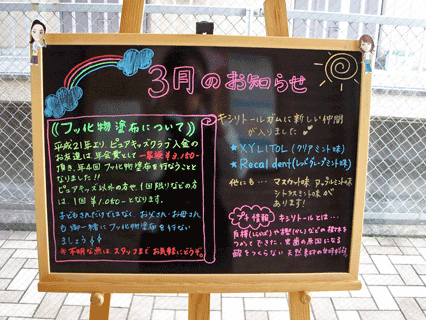 3月のお知らせ
《フッ化物塗布について》
平成21年より、ピュアキッズクラブ入会の
お友達は、年会費として 一家族¥3,150-
頂き、年4回フッ化物塗布を行なうことと
なりました!!
ピュアキッズ以外の方や、1回限りなどの方
は、1回 ¥1,050-となります。
子どもさんだけではなく、お父さん・お母さん
も御一緒にフッ化物塗布を行ない
ましょう
※不明な点は スタッフまで お気軽にどうぞ。
キシリトールガムに新しい仲間
が入りました
★XYLITOL (クリアミント味)
★Recaldent(レッドグレープミント味)
他にも… マスカット味 アップルミント味
シトラスミント味 が
あります!
プチ情報 キシリトールとは…
白樺(しらかば)や樫(かし)などの樹木を
つかってできた、虫歯の原因になる
酸をつくらない 天然素材の甘味料